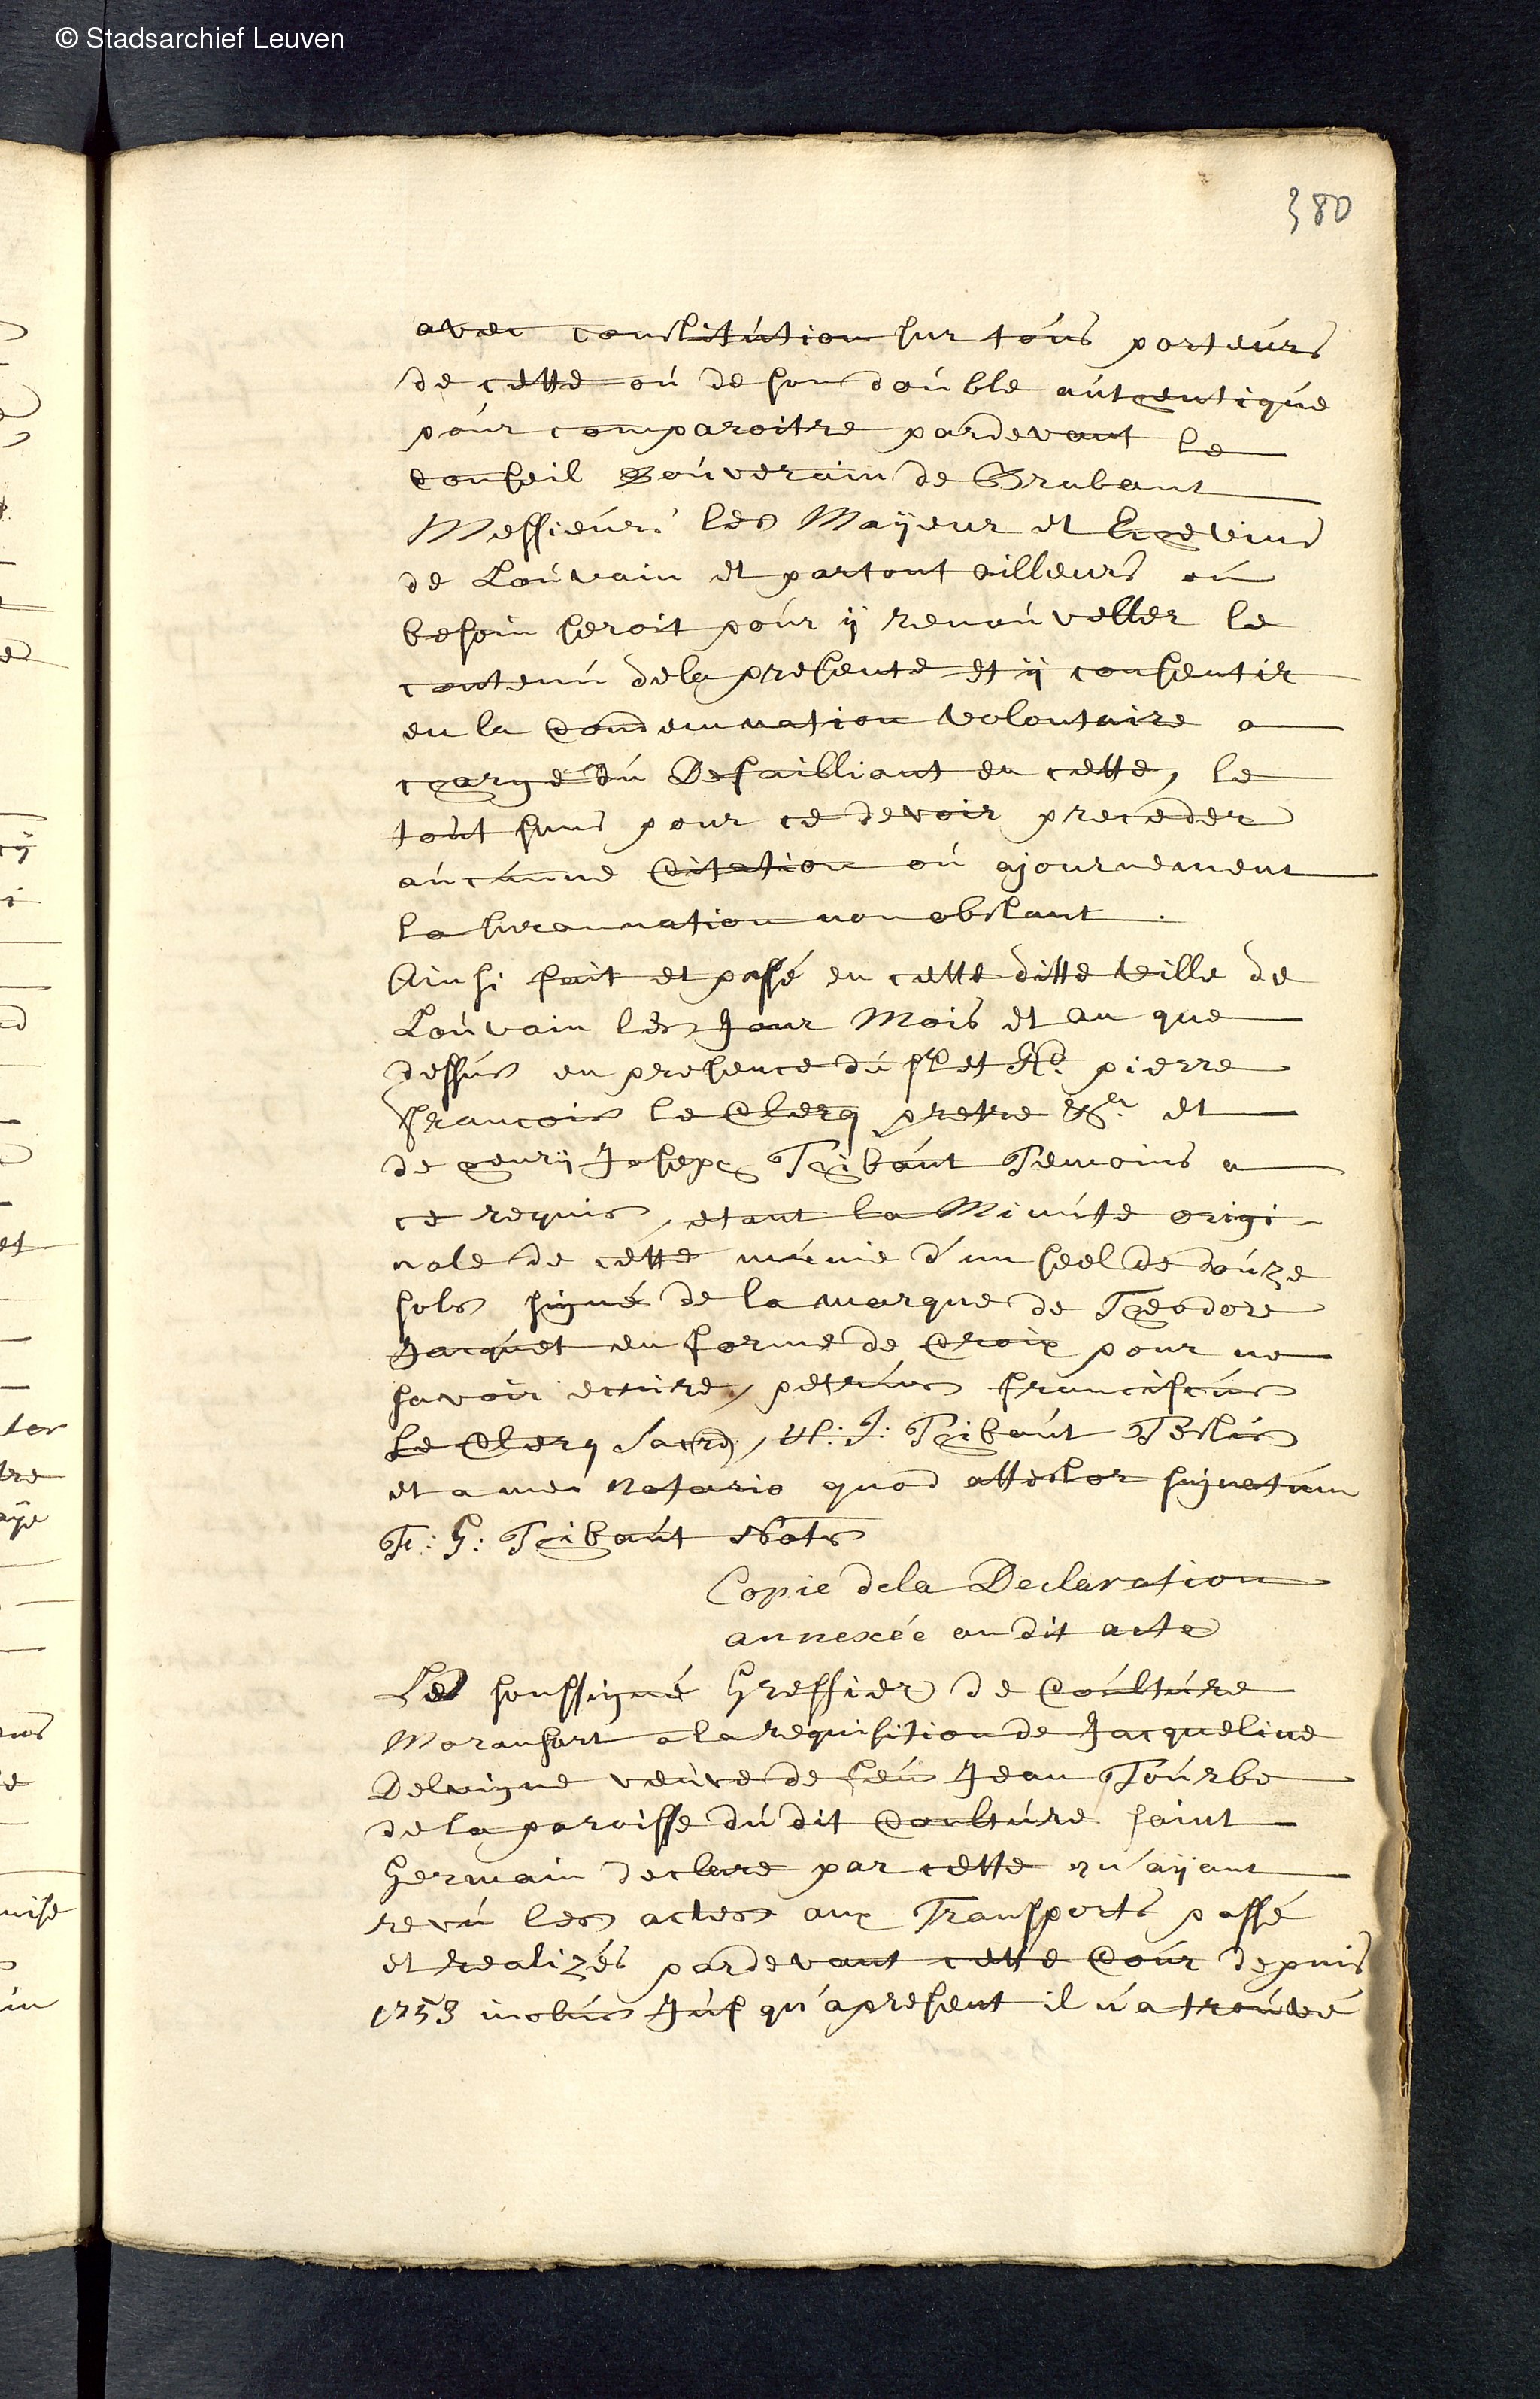 © Stadsarchief Leuven
380
avec constitution sur tous porteurs
de cette ou de son double authentique
pour comparoitre pardevant le
Conseil Souverain de Brabant
Messieurs les Maÿeur et Echevins
de Louvain et partout ailleurs où
besoin seroit pour ÿ renouveller le
contenu dela presente et ÿ consentir
en la Condemnation volontaire a
charge du Defailliant en cette, le
tout sans pour ce devoir preceder
aucunne Citation ou ajournement
la surannation non obstant.
Ainsi fait et passé en cette ditte ville de
Louvain les Jour Mois et an que
dessus en presence du Sr et Rd. pierre
francois le Clerq pretre &a. et
de henrÿ Joseph Thibaut Temoins a
ce requis, etant la Minute origi-
nale de cette munie d'un seel de douze
sols signé de la marque de Theodore
Jacquet en forme de Croix pour ne
savoir ecrire, petrus franciscus
Le Clerq Sacrd, H: J: Thibaut Testis
et a me Notario quod attestor signatum
F: G: Thibaut Nots
Copie dela Declaration
annexée au dit acte
Le soussigné Greffier de Couture
Maransart a la requisition de Jacqueline
Delvigne veuve de feu Jean Tourbe
de la paroisse du dit Couture saint
Germain declare par cette qu'aÿant
revu les actes aux Transports passé
et realizés pardevant cette Cour depuis
1753 inclus Jusqu'apresent il n'a trouvé